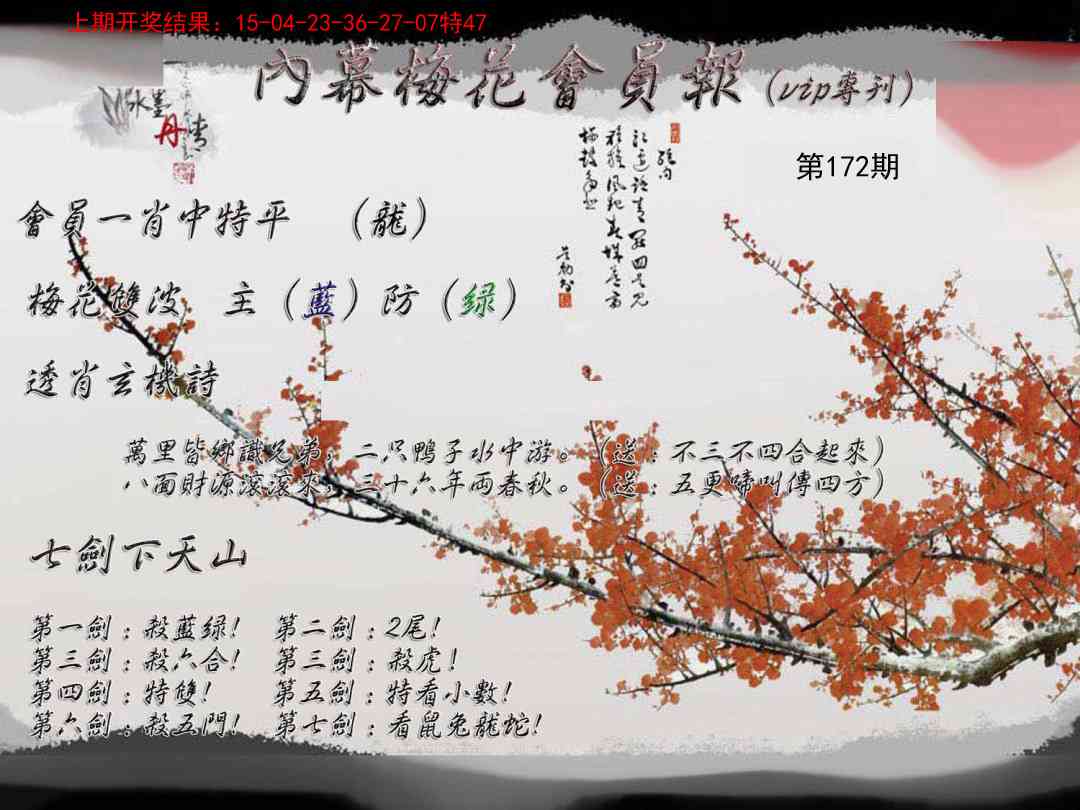 上期开奖结果：15-04-23-36-27-07特47
內幕梅花會員報（vip專刊）
水墨
丹青
第172期
會員一肖中特平　（龍）
梅花雙波　主（藍）防（绿）
透肖玄機詩
萬里皆鄉識兄弟，二只鴨子水中游。（送：不三不四合起來）
八面財源滾滾來，三十六年両春秋。（送：五更啼叫傳四方）
七劍下天山
第一劍：殺藍绿！　第二劍：2尾！
第三劍：殺六合！　第三劍：殺虎！
第四劍：特雙！　第五劍：特看小數！
第六劍：殺五門！　第七劍：看鼠兔龍蛇！